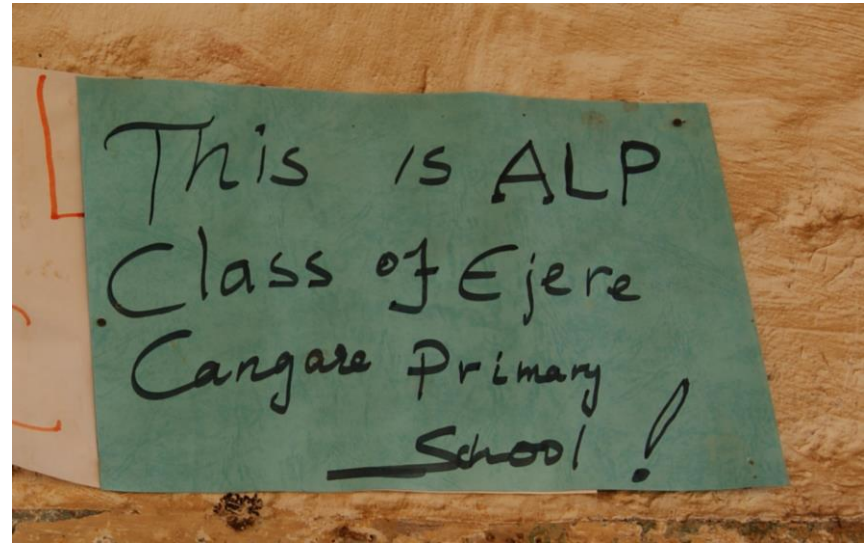 This is ALP
Class of Ejere
Cangare Primary
School!